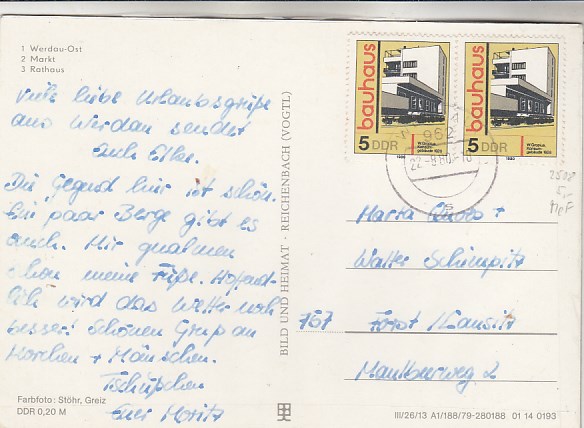 1 Werdau-Ost
2 Markt
3 Rathaus
Viele liebe Urlaubsgrüße
aus Werdau sendet
Euch Elke.
Die Gegend hier ist schön.
Ein paar Berge gibt es
auch. Mir qualmen
schon meine Füße. Hoffent-
lich wird das Wetter noch
besser! Schönen Gruß an
+
Tschüßchen
Eure Moritz
Farbfoto: Stöhr, Greiz
DDR 0,20 M
BILD UND HEIMAT · REICHENBACH (VOGTL)
bauhaus
5 DDR
W. Gropius
1980
bauhaus
5 DDR
W. Gropius
1980
962
22.-9.80
Maria +
Walter
757 Forst /Lausitz
2
III/26/13 A1/188/79-280188 01 14 0193